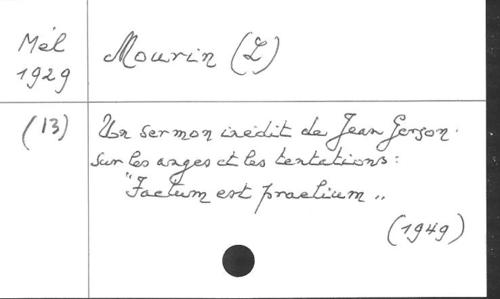 Mél
1929
Mourin (L)
(13)
Un sermon inédit de Jean Gerson.
sur les anges et les tentations :
"Factum est praelium „
(1949)